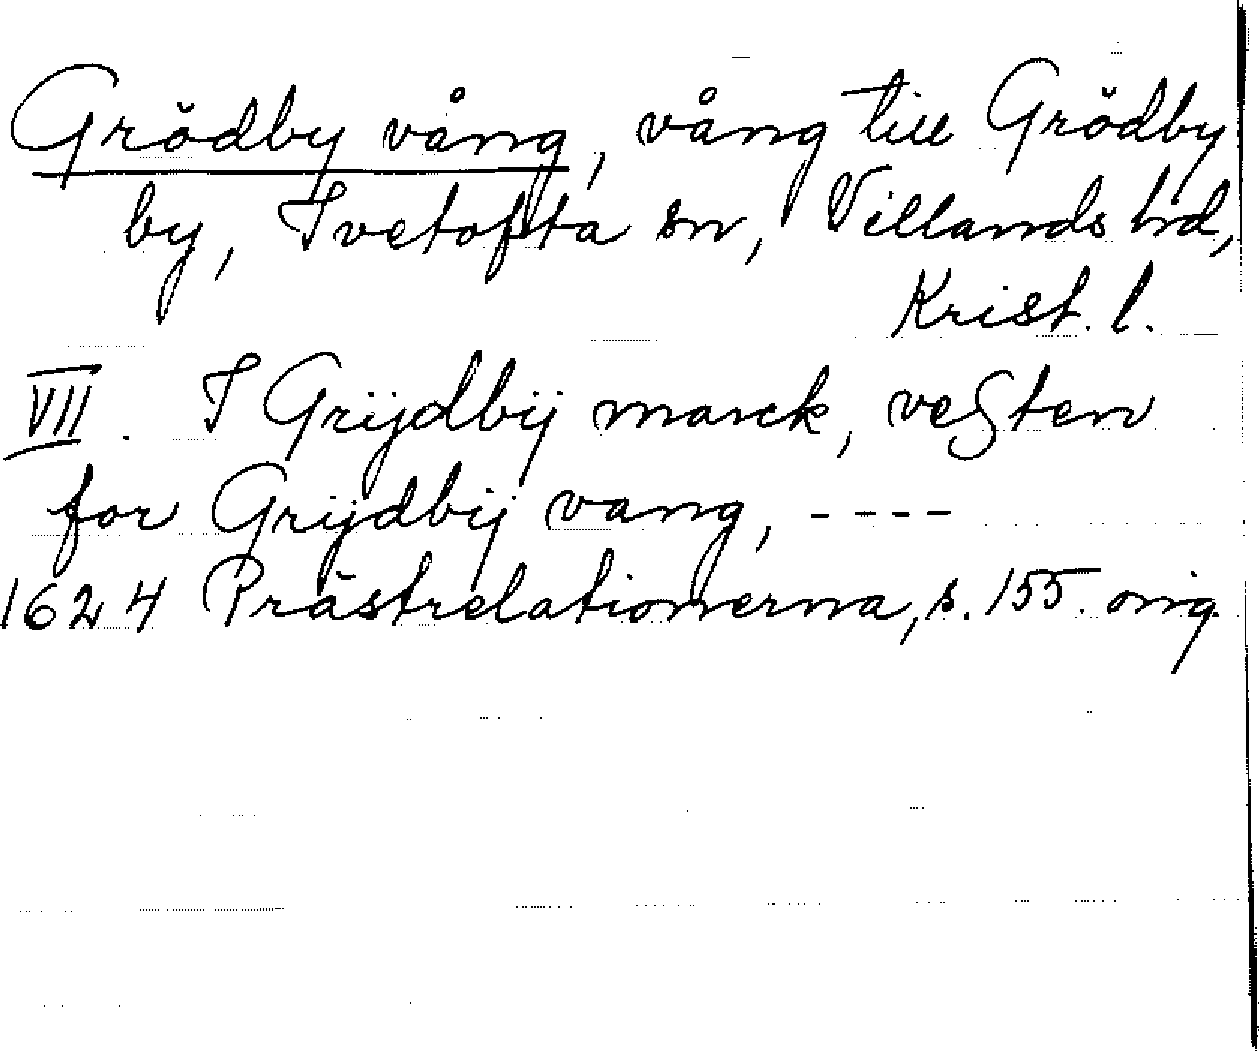 Grödby vång, vång till Grödby
by, Ivetofta sn, Villands hd,
Krist. l.
VII. I Grijdbij marck, veSten
for Grijdbij vang, ----
1624 Prästrelationerna, s. 155. orig.